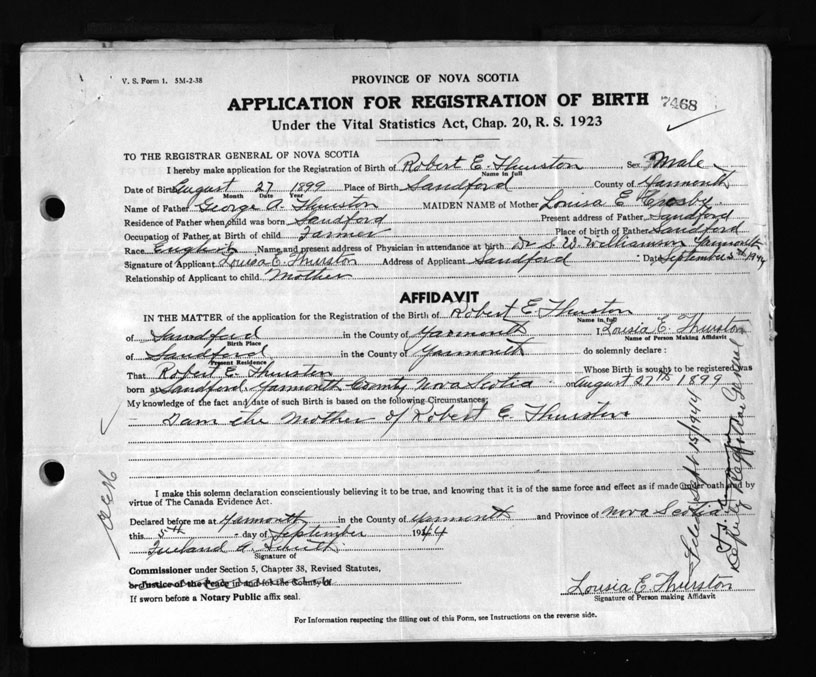 V. S. Form 1. 5M-2-38
PROVINCE OF NOVA SCOTIA
APPLICATION FOR REGISTRATION OF BIRTH
7468
Under the Vital Statistics Act, Chap. 20, R. S. 1923
TO THE REGISTRAR GENERAL OF NOVA SCOTIA
I hereby make application for the Registration of Birth of Robert E. Thurston Sex Male
Name in full
Date of Birth August 27 1899 Place of Birth Sandford County of Yarmouth
Month Date Year
Name of Father George A. Thurston MAIDEN NAME of Mother Louisa E Crosby
Residence of Father when child was born Sandford Present address of Father Sandford
Occupation of Father at Birth of child Farmer Place of birth of Father Sandford
Race English Name and present address of Physician in attendance at birth Dr S. W. Williamson Yarmouth
Signature of Applicant Louisa E. Thurston Address of Applicant Sandford Date September 5th 1944
Relationship of Applicant to child Mother
AFFIDAVIT
IN THE MATTER of the application for the Registration of Birth of Robert E. Thurston
Name in full
of Sandford in the County of Yarmouth I, Lousia E. Thurston
Birth Place Name of Person Making Affidavit
of Sandford in the County of Yarmouth do solemnly declare:
Present Residence
That Robert E. Thurston Whose Birth is sought to be registered was
born at Sandford Yarmouth County Nova Scotia on August 27th 1899
My knowledge of the fact and date of such Birth is based on the following Circumstances:
I am the Mother of Robert E. Thurston
I make this solemn declaration conscientiously believing it to be true, and knowing that it is of the same force and effect as if made under oath and by
virtue of The Canada Evidence Act.
Declared before me at Yarmouth in the County of Yarmouth and Province of Nova Scotia
this 5th day of September 1944
Signature of
Commissioner under Section 5, Chapter 38, Revised Statutes,
or Justice of the Peace in and for the County of
If sworn before a Notary Public affix seal.
Lousia E. Thurston
Signature of Person making Affidavit
For Information respecting the filling out of this Form, see Instructions on the reverse side.
Filed Sept 15/1944
Deputy Registrar General